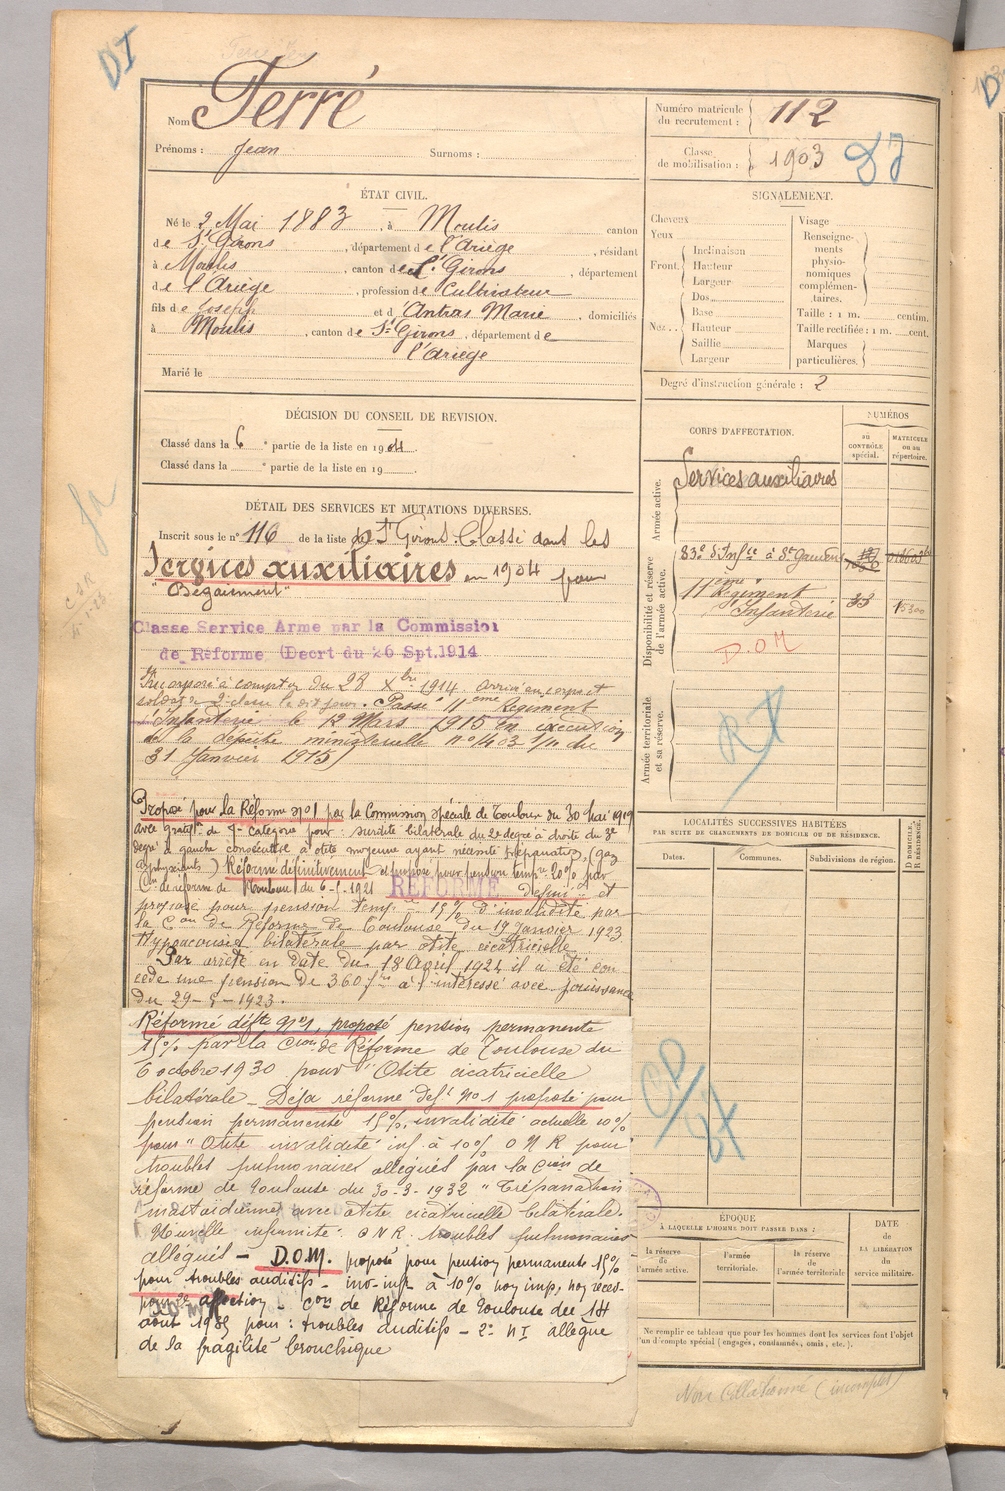 DI
Nom Terré
Prénoms : Jean Surnoms :
ÉTAT CIVIL.
Né le 2 Mai 1883, à Moulis canton
de St Girons, département de l'Ariège, résidant
à Moulis, canton de St Girons, département
de l'Ariège, profession de Cultivateur
fils de Joseph et d'Antras Marie, domiciliés
à Moulis, canton de St Girons, département de
l'Ariège
Marié le
DÉCISION DU CONSEIL DE REVISION.
Classé dans la 6e partie de la liste en 1904.
Classé dans la e partie de la liste en 19 .
DÉTAIL DES SERVICES ET MUTATIONS DIVERSES.
Inscrit sous le n° 116 de la liste de St Girons. Classé dans les
Services auxiliaires en 1904 pour
"Bégaiement"
Classe Service Arme par la Commission
de Réforme (Decrt du 26 Spt.1914
Incorporé à compter du 28 Xbre 1914. Arrivé au corps et
soldat de 2e classe le dit jour. Passé 11eme Régiment
d'Infanterie le 12 Mars 1915 en exécution
de la dépêche ministérielle n° 1403 1/11 du
31 Janvier 1915)
Proposé pour la Réforme n°1 par la Commission spéciale de Toulouse du 30 Mai 1919
avec gratif. de 7e catégorie pour : surdité bilatérale du 2e degré à droite du 3e
degré à gauche consécutive à otite moyenne ayant nécessité trépanation, (gaz
asphyxiants) Réformé définitivement et proposé pour pension temp. 20% par
Con de réforme de Toulouse du 6-5-1921 RÉFORMÉ définif et
proposé pour pension temp. 15% d'invalidité par
la Con de Réforme de Toulouse du 19 Janvier 1923.
Hypoacousie bilatérale par otite cicatricielle
Par arrêté en date du 18 Avril 1924 il a été con
cédé une pension de 360 frs à l'intéressé avec jouissance
du 29-5-1923.
Réformé défte n°1, proposé pension permanente
15% par la Cion de Réforme de Toulouse du
6 octobre 1930 pour "Otite cicatricielle
bilatérale - Déjà réformé déf. n°1 proposé pour
pension permanente 15%, invalidité actuelle 10%
pour "Otite invalidité inf. à 10% O N R pour
troubles pulmonaires allégués par la Cion de
réforme de Toulouse du 30-3-1932 "Trépanation
mastoïdienne avec otite cicatricielle bilatérale.
Nouvelle infirmité : ONR. troubles pulmonaires
allégués - D.O.M. proposé pour pension permanente 15%
pour troubles auditifs - inv-inf. à 10% non imp, non réces-
pour 2e affection - Con de Réforme de Toulouse du 14
août 1935 pour : troubles auditifs - 2° N I allègue
de la fragilité bronchique
Numéro matricule du recrutement : 112
Classe de mobilisation : 1903
SIGNALEMENT.
Cheveux
Yeux
Front. Inclinaison
Hauteur
Largeur
Nez. . Dos
Base
Hauteur
Saillie
Largeur
Visage
Renseigne-
ments
physio-
nomiques
complémen-
taires.
Taille : 1 m. centim.
Taille rectifiée : 1 m. cent.
Marques
particulières.
Degré d'instruction générale : 2
CORPS D'AFFECTATION.
NUMÉROS
au
CONTRÔLE
spécial.
MATRICULE
ou au
répertoire.
Armée active.
Services auxiliaires
Disponibilité et réserve
de l'armée active.
83e d'Infie à St Gaudens
11ème Régiment
d'Infanterie 33 15300
D.O M
Armée territoriale
et sa réserve.
RT
LOCALITÉS SUCCESSIVES HABITÉES
PAR SUITE DE CHANGEMENTS DE DOMICILE OU DE RÉSIDENCE.
Dates.
Communes.
Subdivisions de région.
D DOMICILE.
R RÉSIDENCE.
ÉPOQUE
À LAQUELLE L'HOMME DOIT PASSER DANS :
la réserve
de
l'armée active.
l'armée
territoriale.
la réserve
de
l'armée territoriale
DATE
de
LA LIBÉRATION
du
service militaire.
Ne remplir ce tableau que pour les hommes dont les services font l'objet
d'un décompte spécial (engagés, condamnés, omis, etc.).
Non collationné (incomplet)